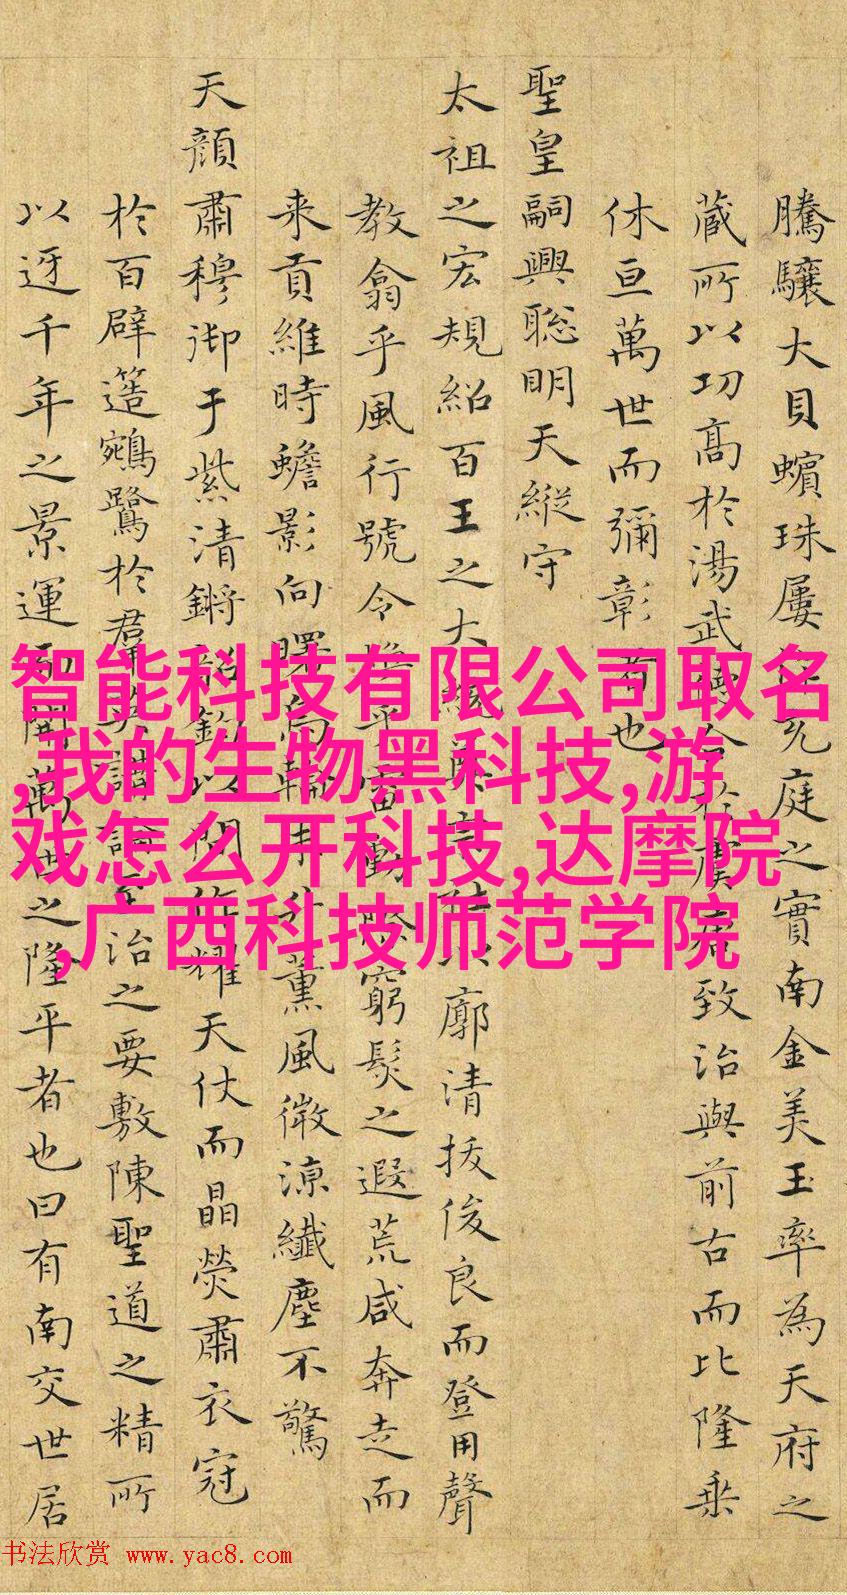 騰驤大貝蠙珠屢
庭之實南金美玉率為天府之
藏所以功高於湯武德
君致治與前古而比隆乘
休亘萬世而彌彰者也
聖皇嗣興聡明天縱守
太祖之宏規紹百王之大統
廓清拔俊良而登用聲
教翕乎風行號令煥乎雷動
窮髮之遐荒咸奔走而
来貢維時蟾影向曙
薰風微涼纖塵不驚
天顔肅穆御于紫清鏘
耀天仗而晶熒肅衣冠
於百辟簉鵷鷺於羣英講論至治之要敷陳聖道之精所
以迓千年之景運
開萬世之隆平者也曰有南交世居
智能科技有限公司取名
,我的生物黑科技,游
戏怎么开科技,达摩院
,广西科技师范学院
书法欣赏 www.yac8.com